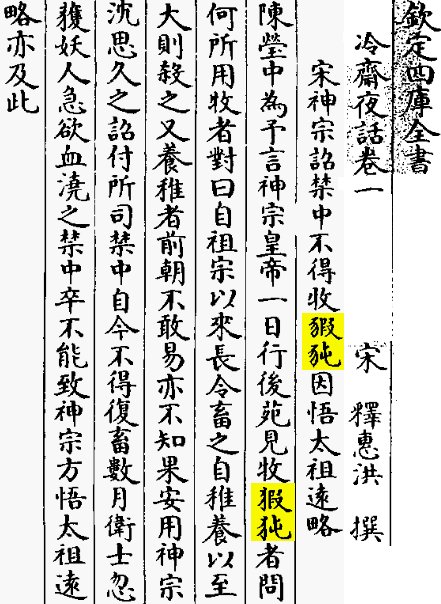 欽定四庫全書
冷齋夜話卷一　宋　釋惠洪　撰
宋神宗詔禁中不得收豭豘因悟太祖遠略
陳瑩中為予言神宗皇帝一日行後苑見牧猳㹠者問
何所用牧者對曰自祖宗以來長令畜之自稚養以至
大則殺之又養稚者前朝不敢易亦不知果安用神宗
沈思久之詔付所司禁中自今不得復畜數月衛士忽
獲妖人急欲血澆之禁中卒不能致神宗方悟太祖遠
略亦及此